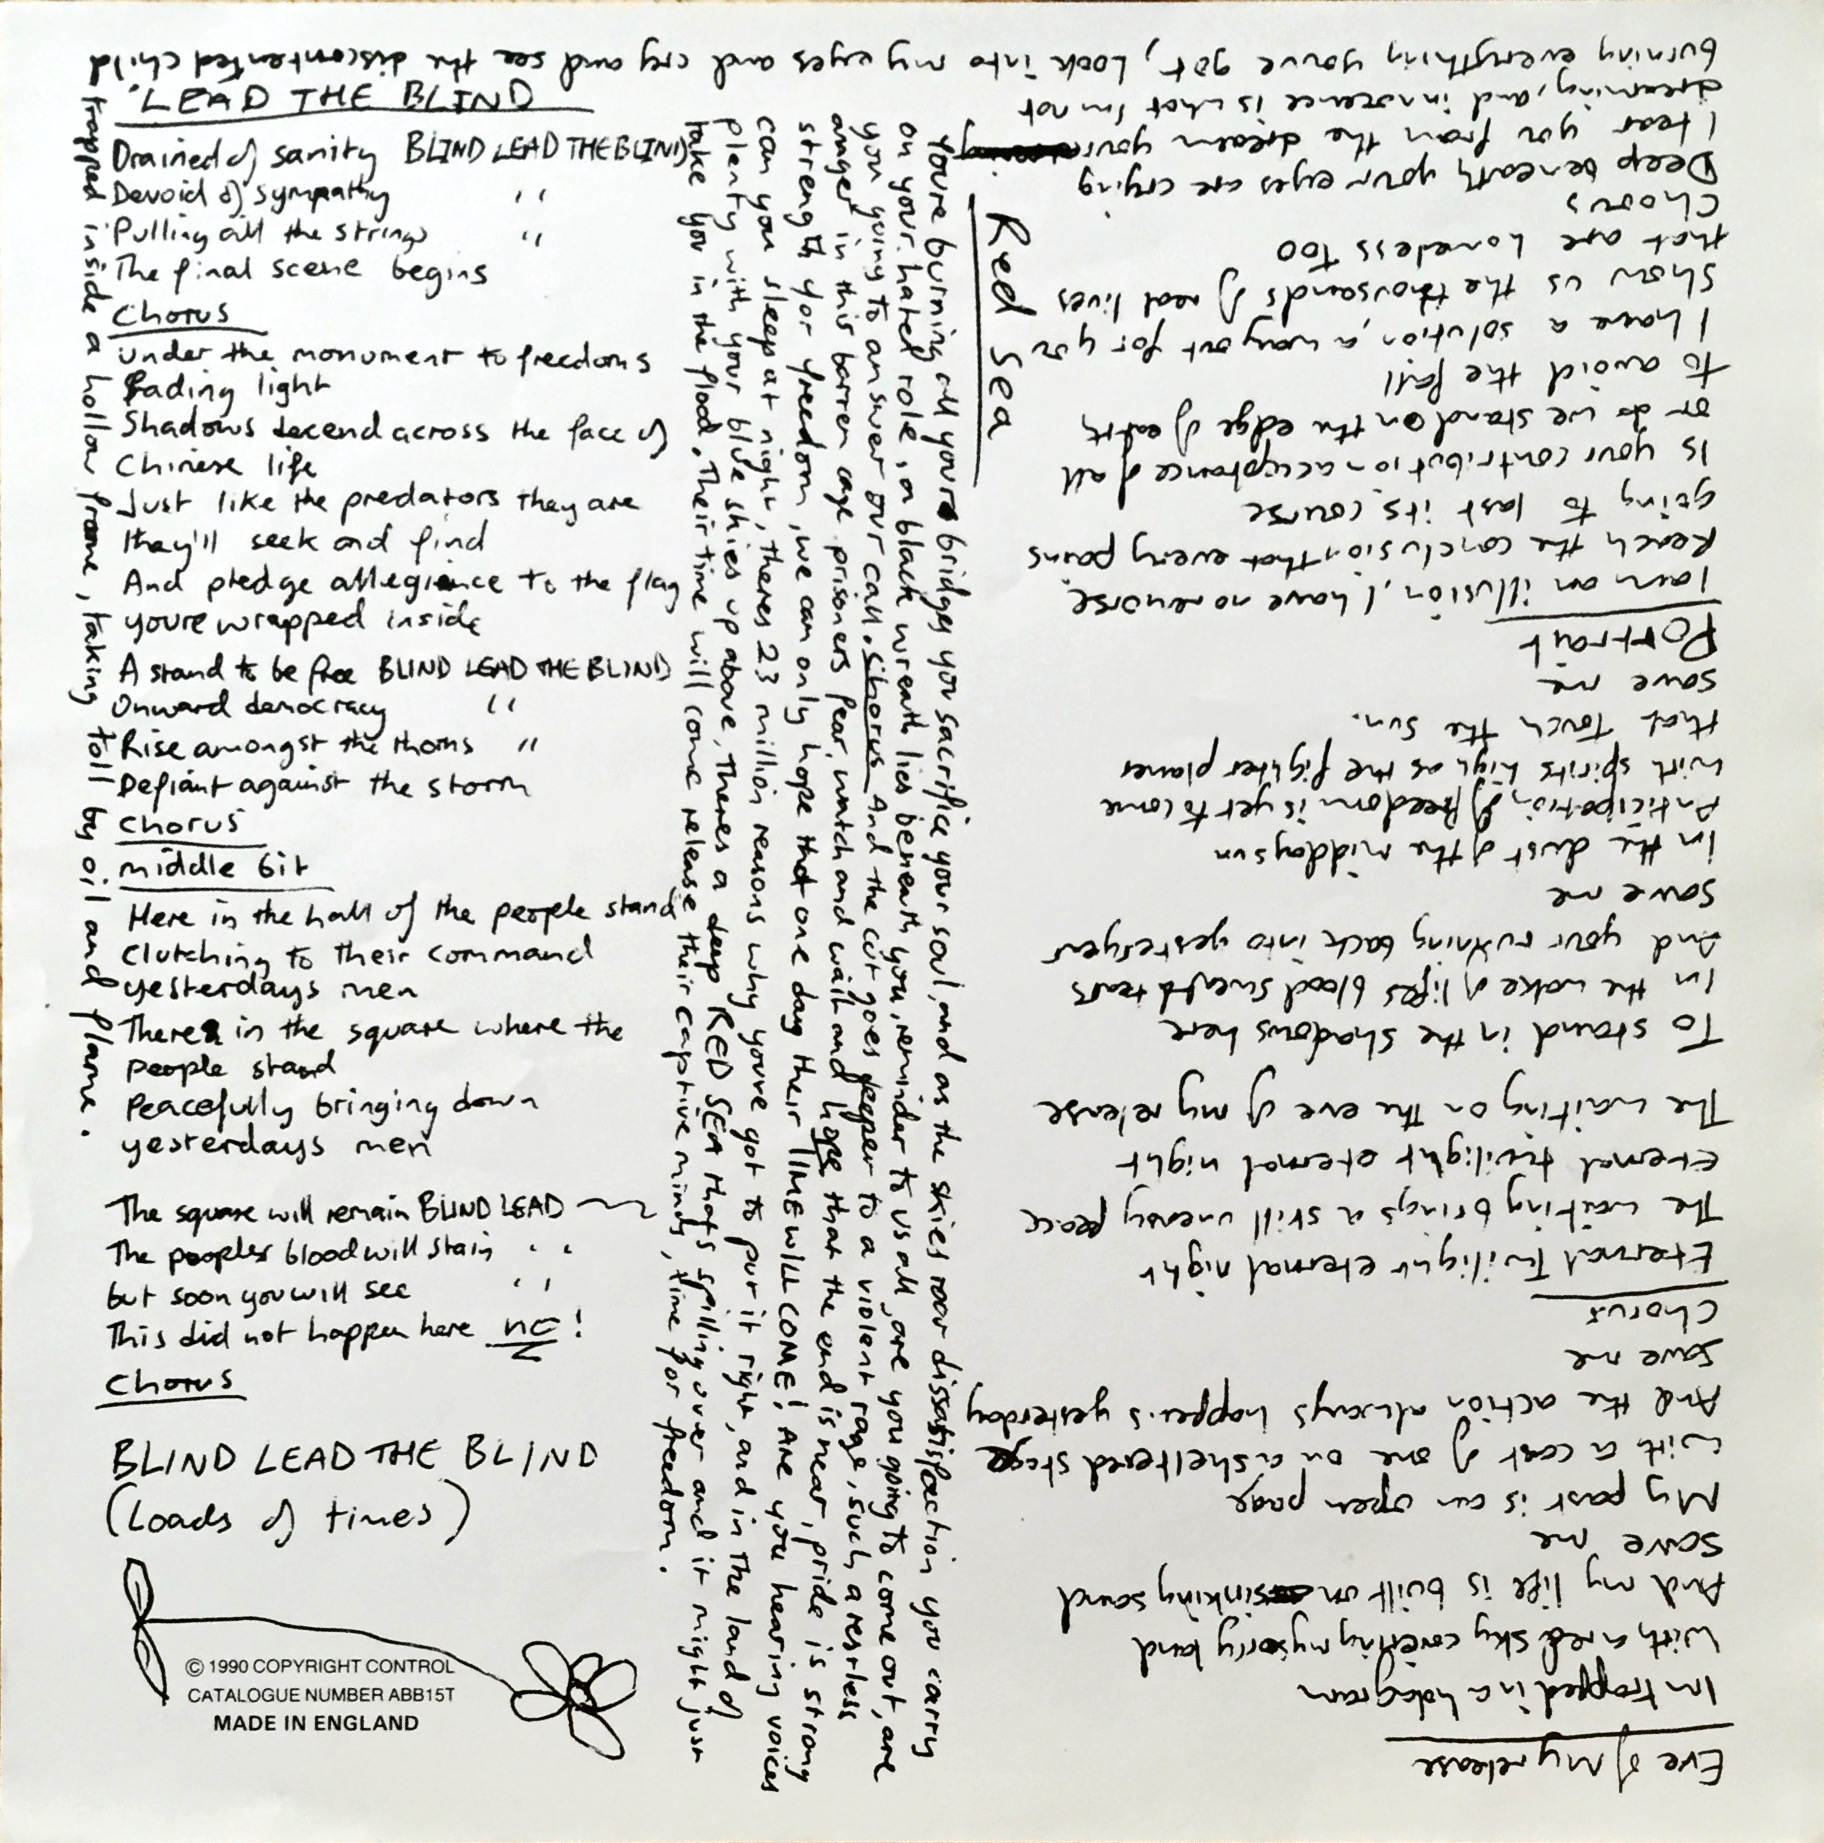 LEAD THE BLIND
Drained of sanity BLIND LEAD THE BLIND
Devoid of sympathy " "
Pulling all the strings "
The final scene begins
Chorus
under the monument to freedoms
fading light
Shadows decend across the face of
Chinese life
Just like the predators they are
they'll seek and find
And pledge allegience to the flag
youre wrapped inside
A stand to be free BLIND LEAD THE BLIND
Onward democracy "
Rise amongst the thorns "
Defiant against the storm
Chorus
middle bit
Here in the hall of the people stand
Clutching to their command
yesterdays men
There in the square where the
people stand
Peacefully bringing down
yesterdays men
The square will remain BLIND LEAD
The peoples blood will stain " "
but soon you will see " "
This did not happen here NO!
Chorus
BLIND LEAD THE BLIND
(Loads of times)
© 1990 COPYRIGHT CONTROL
CATALOGUE NUMBER ABB15T
MADE IN ENGLAND
Red Sea
Youre burning all youre bridges you sacrifice your soul, and as the skies roar dissatisfaction you carry
on your hated role, a black wreath lies beneath you, reminder to us all, are you going to come out, are
you going to answer our call. Chorus And the cut goes deeper to a violent rage, such a restless
anger in this barren cage prisoners fear, watch and wait and hope that the end is near, pride is strong
strength for freedom, we can only hope that one day their TIME WILL COME! Are you hearing voices
can you sleep at night, theres 23 million reasons why youve got to put it right, and in the land of
plenty with your blue skies up above, theres a deep RED SEA thats spilling over and it might just
take you in the flood. Their time will come release their captive minds, time for freedom.
Eve of My release
Im trapped in a hologram
With a red sky covering my sorry land
And my life is built on sinking sand
save me
My past is an open page
with a cast of one on a sheltered stage
And the action always happens yesterday
save me
Chorus
Eternal Twilight eternal night
The waiting brings a still uneasy peace
Eternal twilight eternal night
The waiting on the eve of my release
To stand in the shadows here
In the wake of lifes blood sweat & tears
And your running back into yesteryear
save me
In the dust of the midday sun
Anticipation of freedom is yet to come
with spirits high as the fighter planes
that touch the sun.
save me
Portrait
I am an illusion, I have no remorse.
Reach the conclusion that every pawns
going to last its course
Is your contribution acceptance of all
or do we stand on the edge of earth
to avoid the fall
I have a solution, a way out for you
Show us the thousands of real lives
that are homeless too
Chorus
Deep beneath your eyes are crying
I tear you from the dream your
dreaming, and innocence is what I'm not
burning everything youve got, Look into my eyes and cry and see the discontented child
trapped inside a hollow frame, taking toll by oil and flame.